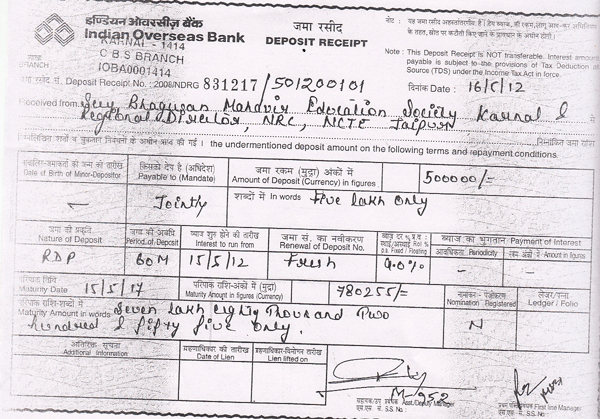 इण्डियन ओवरसीज़ बैंक
Indian Overseas Bank
KARNAL - 1414
C B S BRANCH
IOBA0001414
शाखा
BRANCH
जमा रसीद
DEPOSIT RECEIPT
Note : This Deposit Receipt is NOT TRANSFERABLE. Interest amount
payable is subject to the provisions of Tax Deduction at
Source (TDS) under the Income Tax Act in force
जमा रसीद सं. Deposit Receipt No. : 2008/NDRG 831217/501200101
दिनांक Date : 16/5/12
Received from Sury Bhagwan Mahavir Education Society Karnal &
Regional Director, NRC, NCTE Jaipur
the undermentioned deposit amount on the following terms and repayment conditions.
Date of Birth of Minor-Depositor
किसको देय है (अधिदेश)
Payable to (Mandate)
जमा रकम (मुद्रा) अंकों में
Amount of Deposit (Currency) in figures
500000/=
— Jointly
शब्दों में In words Five lakh only
जमा की प्रकृति
Nature of Deposit
जमा की अवधि
Period of Deposit
ब्याज शुरू होने की तारीख
Interest to run from
जमा सं. का नवीकरण
Renewal of Deposit No.
p.a. Fixed / Floating
ब्याज का भुगतान Payment of Interest
आवधिकता Periodicity
रकम अंकों में Amount in figures
RDP 60M 15/5/12 Fresh 9.0% — —
परिपक्व तिथि
Maturity Date 15/5/17
परिपाक राशि-अंकों में (मुद्रा)
Maturity Amount in figures (Currency) 780255/=
परिपाक राशि-शब्दों में
Maturity Amount in words Seven lakh eighty Thousand Two
hundred & fifty five only.
नामांकन - पंजीकरण
Nomination Registered
N
लेजर/पन्ना
Ledger / Folio
अतिरिक्त सूचना
Additional Information
ग्रहणाधिकार की तारीख
Date of Lien
Lien lifted on
M-952
Asst./Deputy Manager
S.S. No.
First line Manager
S.S. No.